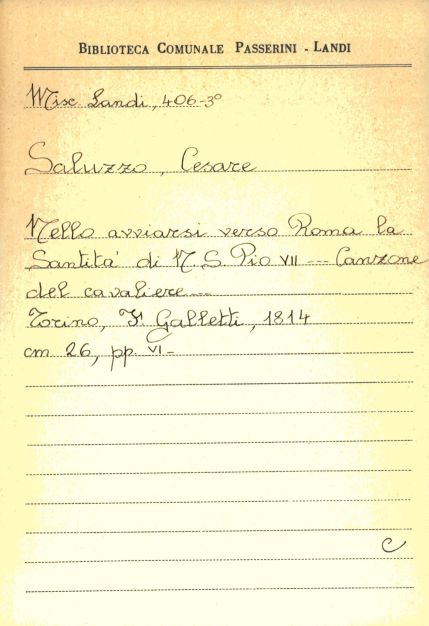 BIBLIOTECA COMUNALE PASSERINI - LANDI
Misc Landi, 406-3º
Saluzzo, Cesare
Nello avviarsi verso Roma la
Santita' di N. S. Pio VII --- Canzone
del cavaliere ---
Torino, F. Galletti, 1814
cm 26, pp. VI -
C